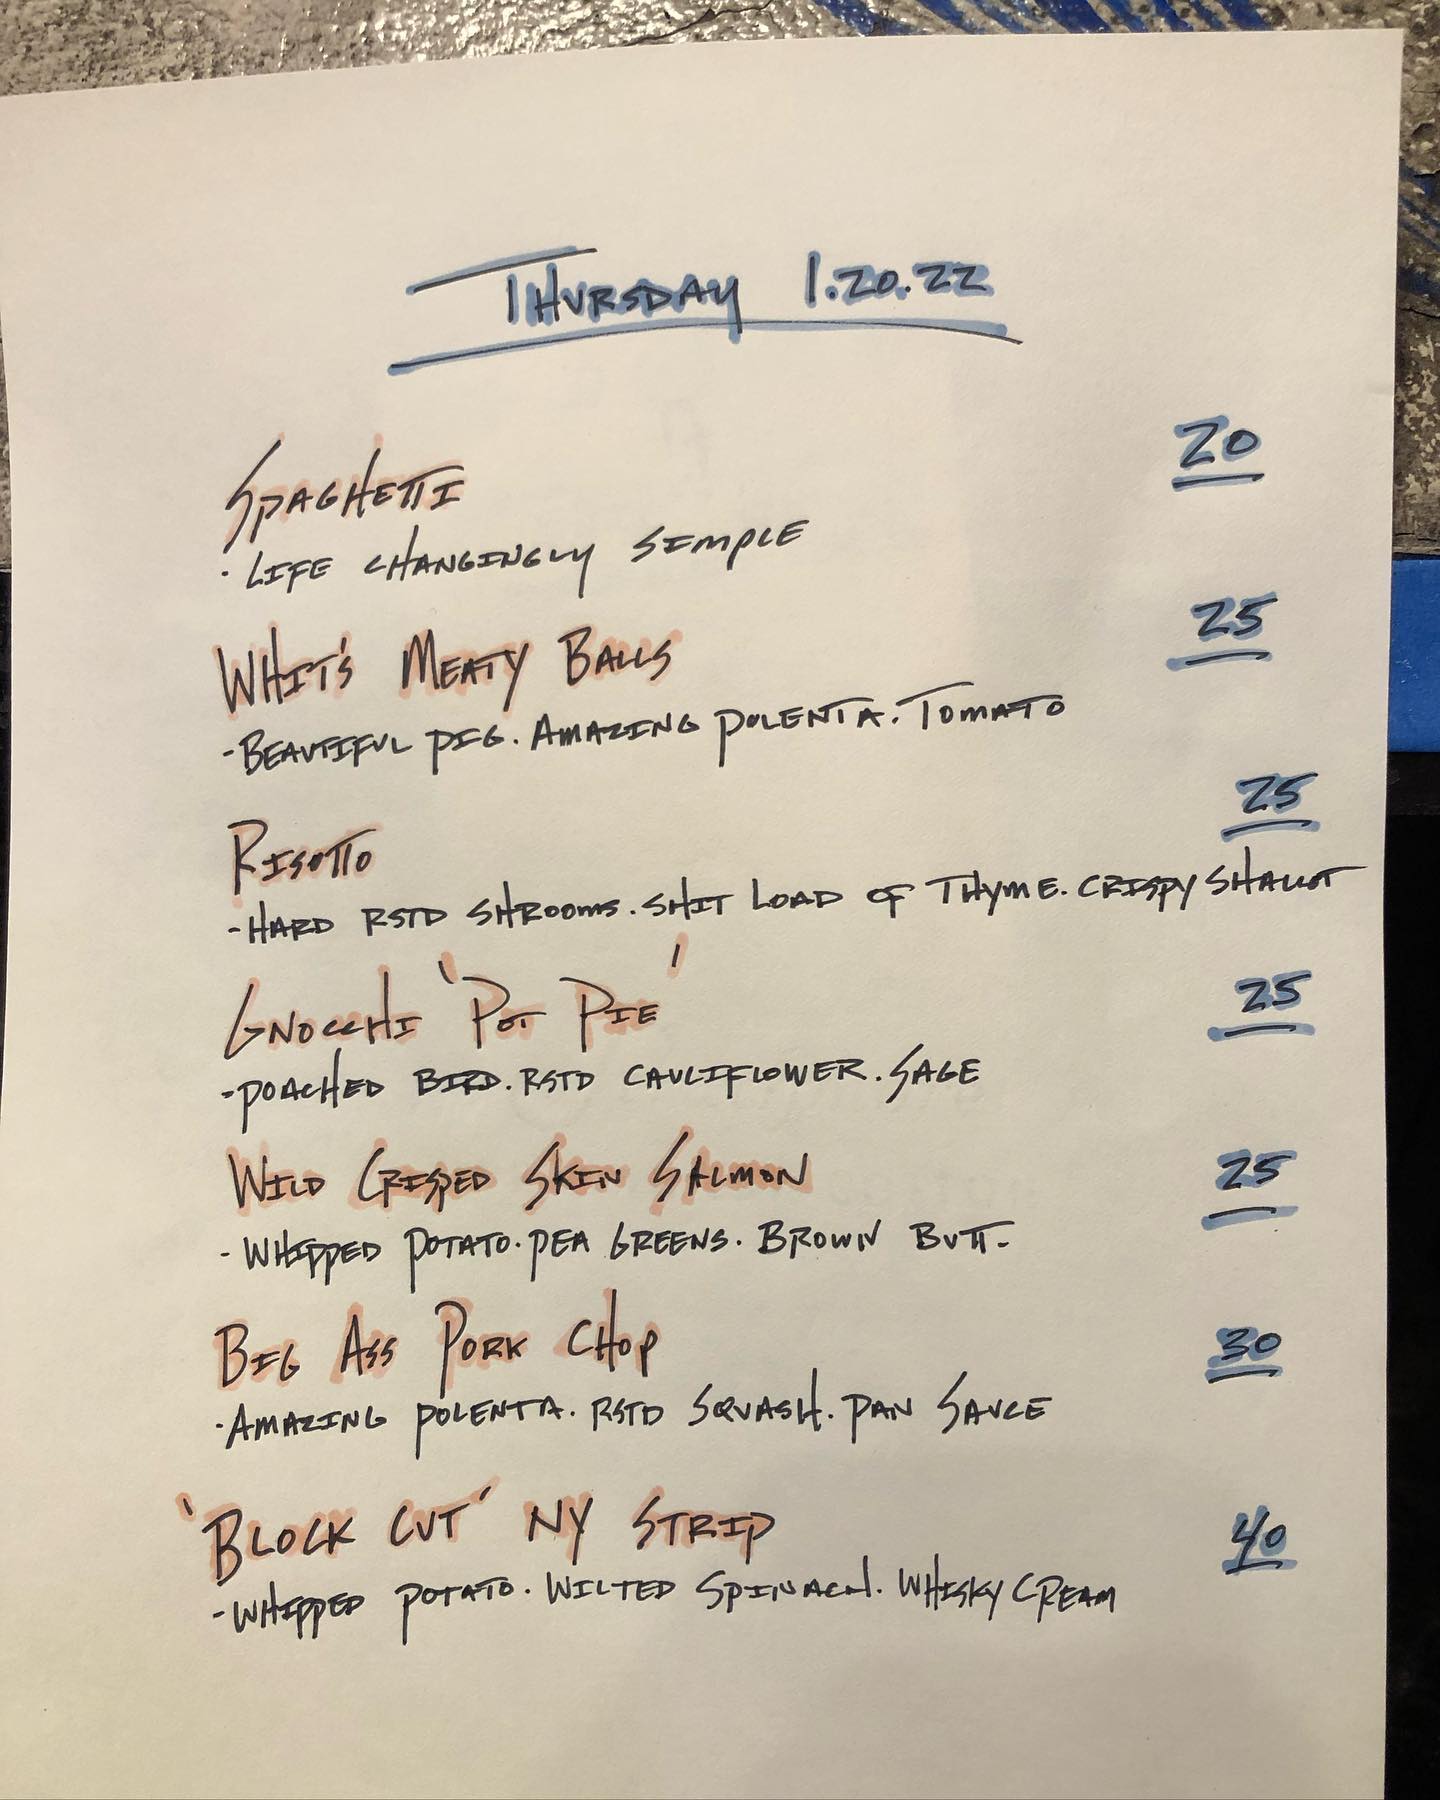 THURSDAY 1.20.22
SPAGHETTI 20
· LIFE CHANGINGLY SIMPLE
WHIT'S MEATY BALLS 25
- BEAUTIFUL PIG. AMAZING POLENTA. TOMATO
RISOTTO 25
- HARD RSTD SHROOMS. SHIT LOAD OF THYME. CRISPY SHALLOT
GNOCCHI 'POT PIE' 25
- POACHED BIRD. RSTD CAULIFLOWER. SAGE
WILD CRISPED SKIN SALMON 25
- WHIPPED POTATO. PEA GREENS. BROWN BUTT-
BIG ASS PORK CHOP 30
- AMAZING POLENTA. RSTD SQUASH. PAN SAUCE
'BLOCK CUT' NY STRIP 40
- WHIPPED POTATO. WILTED SPINACH. WHISKY CREAM